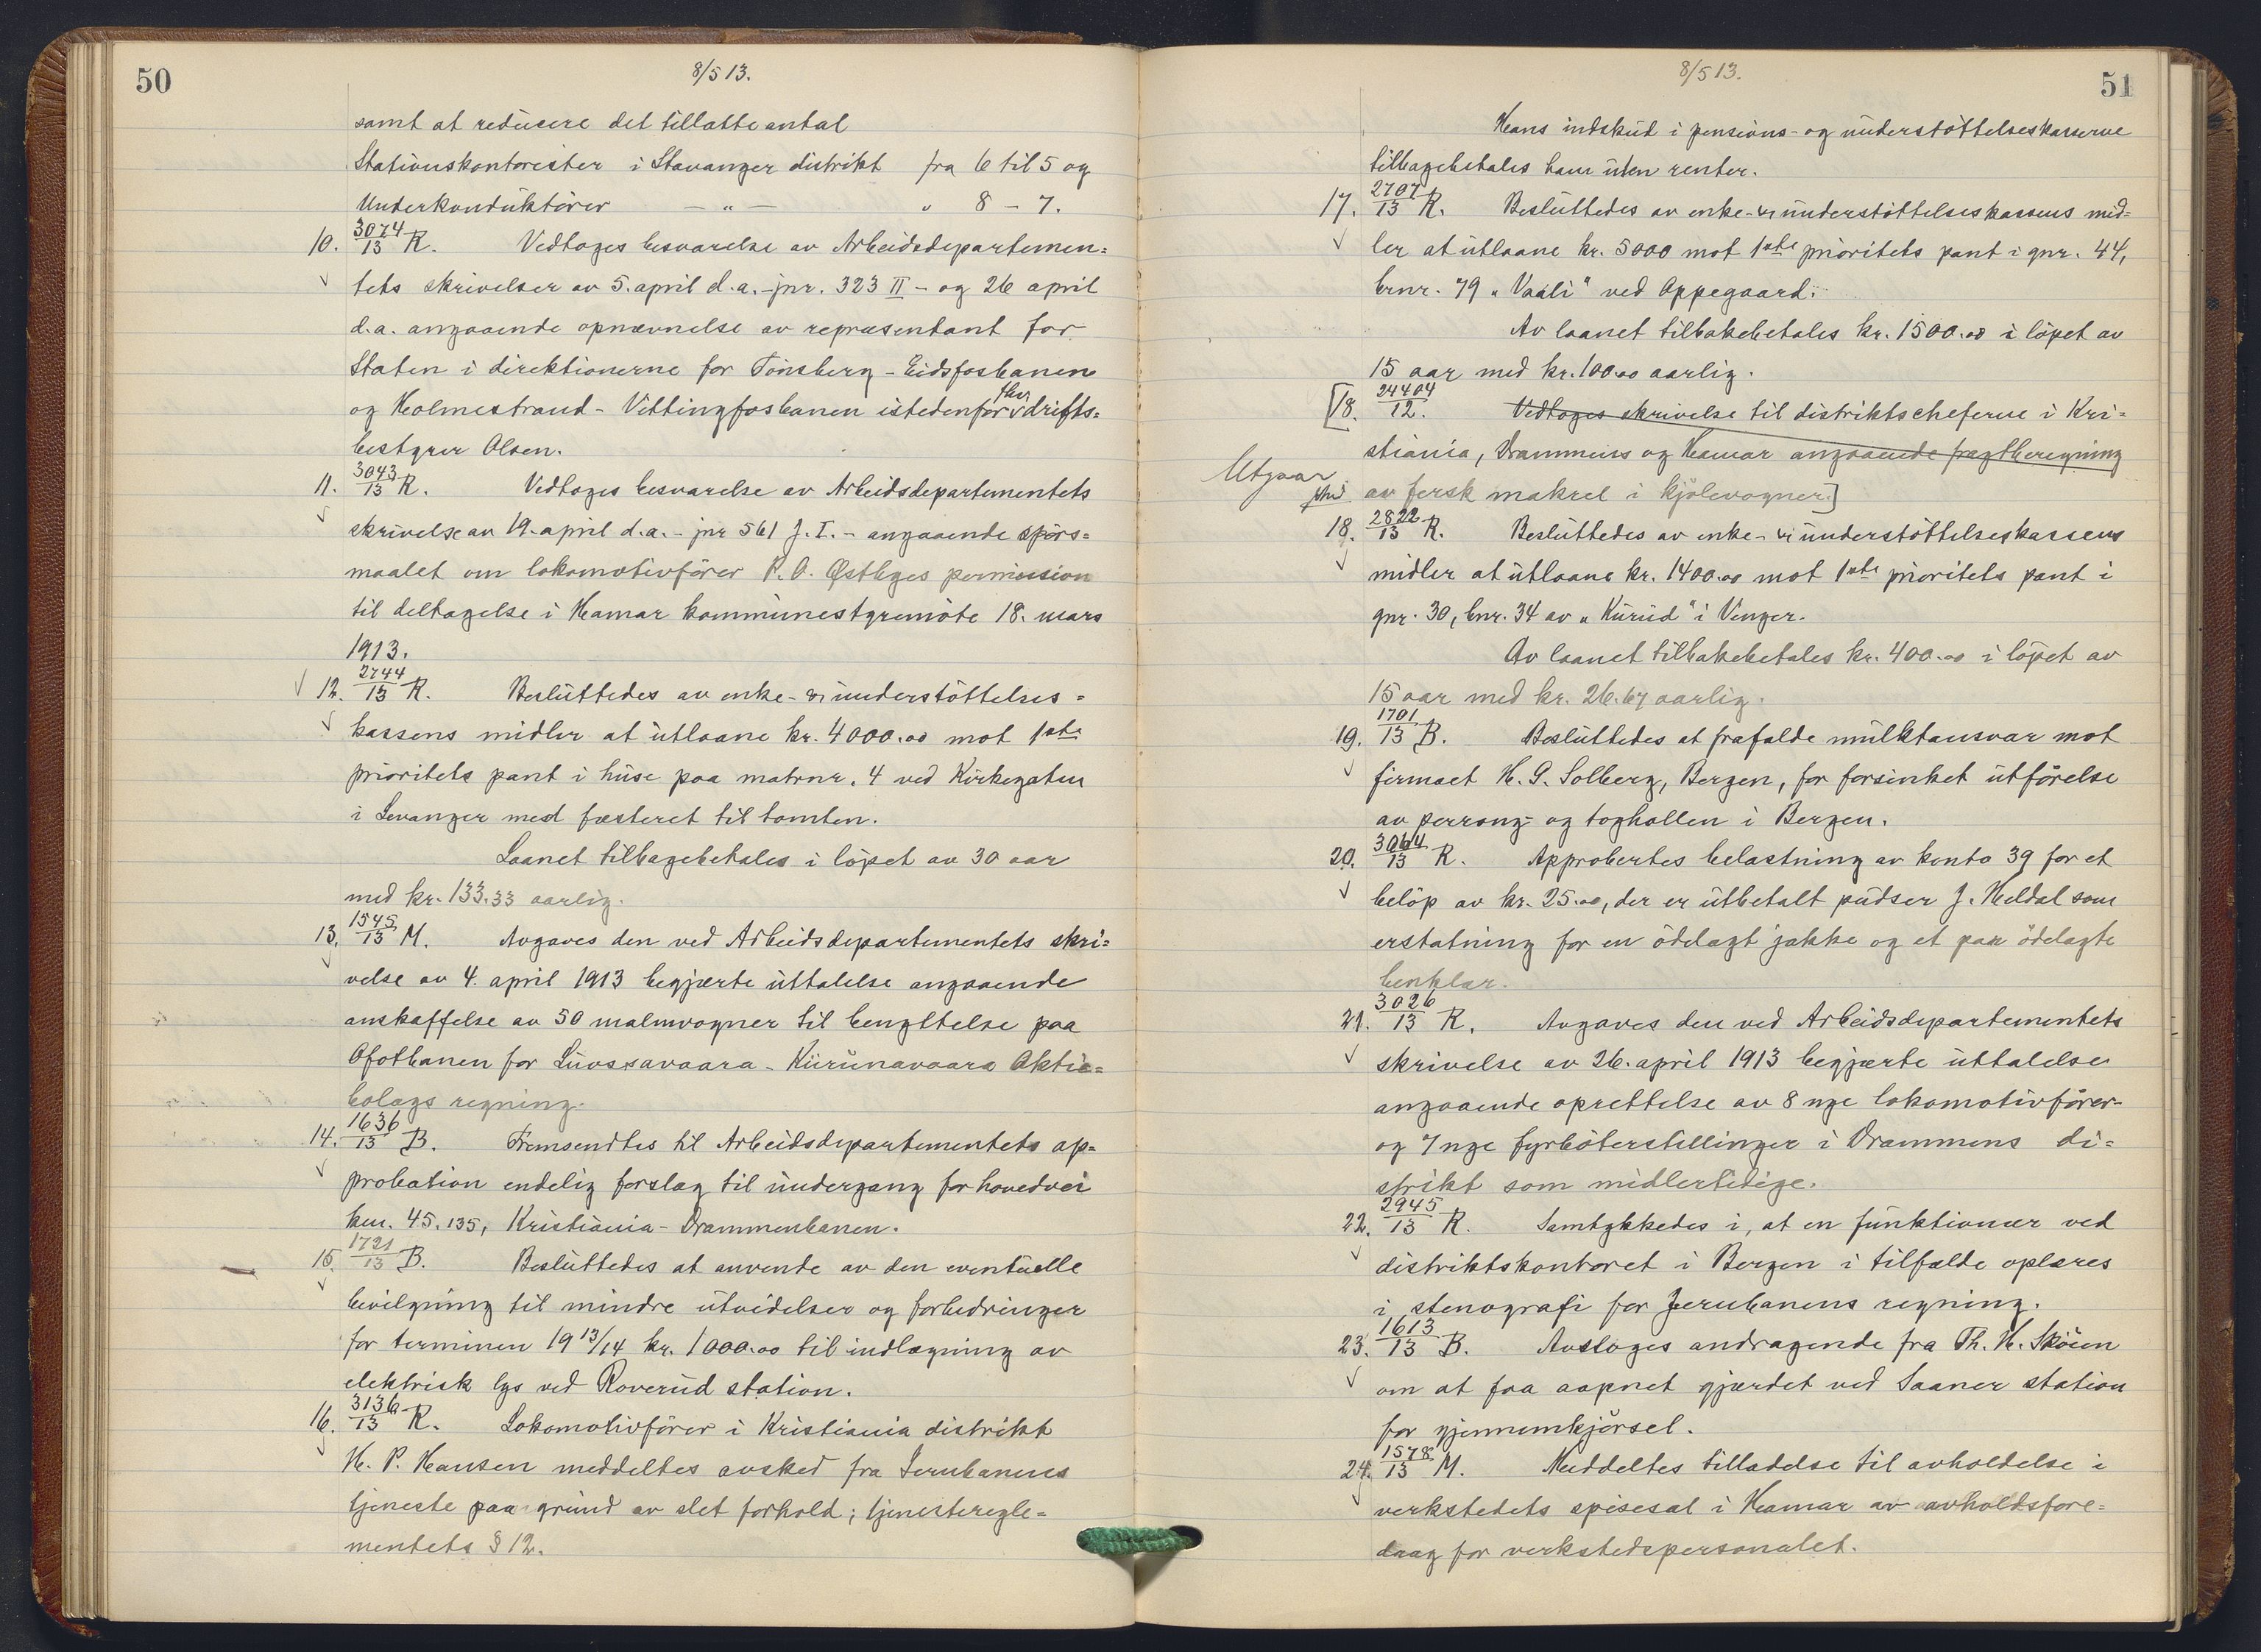 50
8/5 13.
samt at reducere det tillatte antal
Stationskontorister i Stavanger distrikt fra 6 til 5 og
Underkonduktörer — " — " 8 - 7.
10. 3074/13 R. Vedtoges besvarelse av Arbeidsdepartemen=
tets skrivelser av 5. april d.a. - jnr. 323 II - og 26 april
d.a. angaaende opnævnelse av repræsentant for
Staten i direktionerne for Tönsberg - Eidsfosbanen
og Holmestrand - Vittingfosbanen istedenfor fhv. drifts=
bestyrer Olsen.
11. 3043/13 R. Vedtoges besvarelse av Arbeidsdepartementets
skrivelse av 19. april d.a. - jnr 561 J. I. - angaaende spörs=
maalet om lokomotivförer P. O. Østbyes permission
til deltagelse i Hamar kommunestyremöte 18. mars
1913.
12. 2744/13 R. Besluttedes av enke- og understöttelses=
kassens midler at utlaane kr. 4000.00 mot 1ste
prioritets pant i huse paa matrnr. 4 ved Kirkegaten
i Levanger med festeret til tomten.
Laanet tilbagebetales i löpet av 30 aar
med kr. 133.33 aarlig.
13. 1545/13 M. Avgaves den ved Arbeidsdepartementets skri=
velse av 4. april 1913 begjærte uttalelse angaaende
anskaffelse av 50 malmvogner til benyttelse paa
Ofotbanen for Luossavaara - Kiirunavaara Aktie=
bolags regning.
14. 1636/13 B. Fremsendtes til Arbeidsdepartementets ap=
probation endelig forslag til undergang for hovedvei
km. 45.135, Kristiania - Drammenbanen.
15. 1721/13 B. Besluttedes at anvende av den eventuelle
bevilgning til mindre utvidelser og forbedringer
for terminen 19 13/14 kr. 1000.00 til indlægning av
elektrisk lys ved Roverud station.
16. 3136/13 R. Lokomotivförer i Kristiania distrikt
H. P. Hansen meddeltes avsked fra Jernbanens
tjeneste paa grund av slet forhold; tjenesteregle=
mentets § 12.
51
8/5 13.
Hans indskud i pensions- og understöttelseskasserne
tilbagebetales ham uten renter.
17. 2707/13 R. Besluttedes av enke- og understöttelseskassens mid=
ler at utlaane kr. 5000 mot 1ste prioritets pant i gnr. 44,
brnr. 79 "Vaali" ved Oppegaard.
Av laanet tilbakebetales kr. 1500.00 i löpet av
15 aar med kr. 100.00 aarlig.
[18. 24404/12. Vedtoges skrivelse til distriktscheferne i Kri=
stiania, Drammens og Hamar angaaende fragtberegning
Utgaar
av fersk makrel i kjölevogner.]
18. 2822/13 R. Besluttedes av enke- og understöttelseskassens
midler at utlaane kr. 1400.00 mot 1ste prioritets pant i
gnr. 30, bnr. 34 av "Kurud" i Vinger.
Av laanet tilbakebetales kr. 400.00 i löpet av
15 aar med kr. 26.67 aarlig.
19. 1701/13 B. Besluttedes at frafalde mulktansvar mot
firmaet H. G. Solberg, Bergen, for forsinket utförelse
av perrong- og toghallen i Bergen.
20. 3064/13 R. Approbertes belastning av konto 39 for et
belöp av kr. 25.00, der er utbetalt pudser J. Heldal som
erstatning for en ödelagt jakke og et par ödelagte
benklær.
21. 3026/13 R. Avgaves den ved Arbeidsdepartementets
skrivelse av 26. april 1913 begjærte uttalelse
angaaende oprettelse av 8 nye lokomotivförer-
og 7 nye fyrböterstillinger i Drammens di=
strikt som midlertidige.
22. 2945/13 R. Samtykkedes i, at en funktionær ved
distriktskontoret i Bergen i tilfælde oplæres
i stenografi for Jernbanens regning.
23. 1613/13 B. Avsloges andragende fra Th. H. Sköien
om at faa aapnet gjærdet ved Saaner station
for gjennemkjörsel.
24. 1578/13 M. Meddeltes tilladelse til avholdelse i
verkstedets spisesal i Hamar av avholdsfore=
drag for verkstedspersonalet.